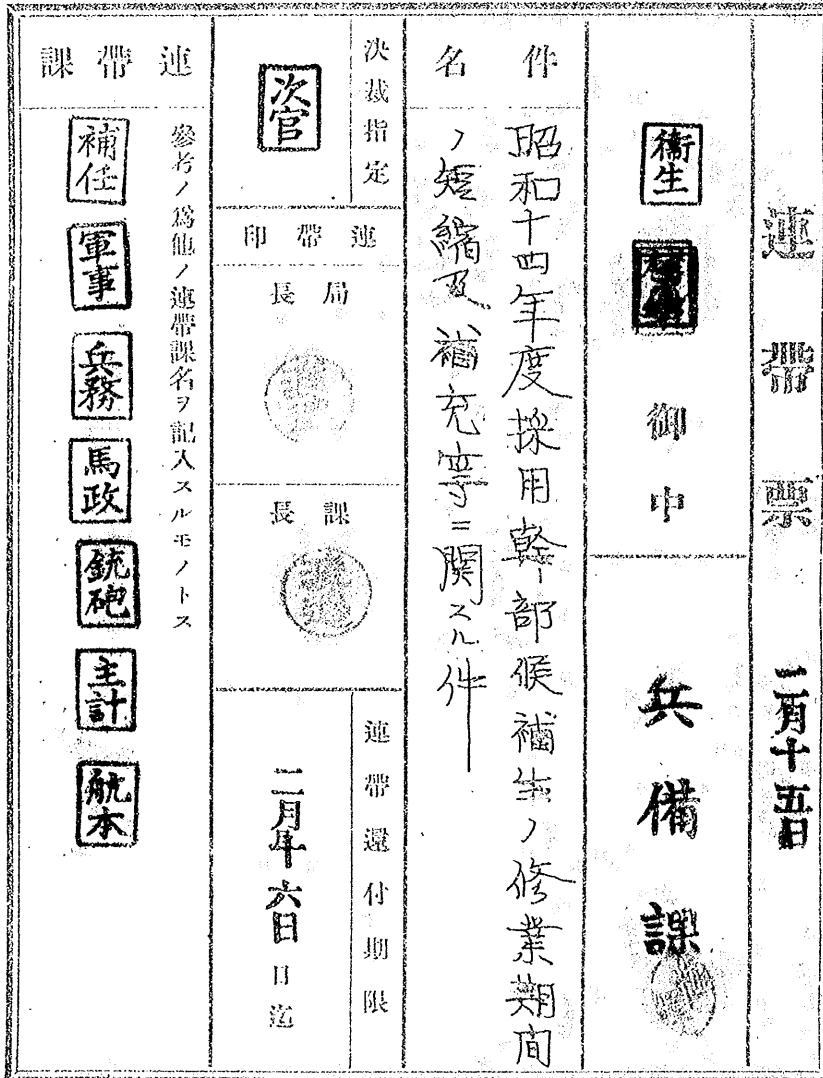 連帶票
二月十五日
衞生
御中
兵備課
件名
昭和十四年度採用幹部候補生ノ修業期間
ノ短縮及補充等ニ関スル件
決裁指定
次官
連帶印
局長
課長
連帶還付期限
二月 六日 日迄
連帶課
參考ノ爲他ノ連帶課名ヲ記入スルモノトス
補任
軍事
兵務
馬政
銃砲
主計
航本